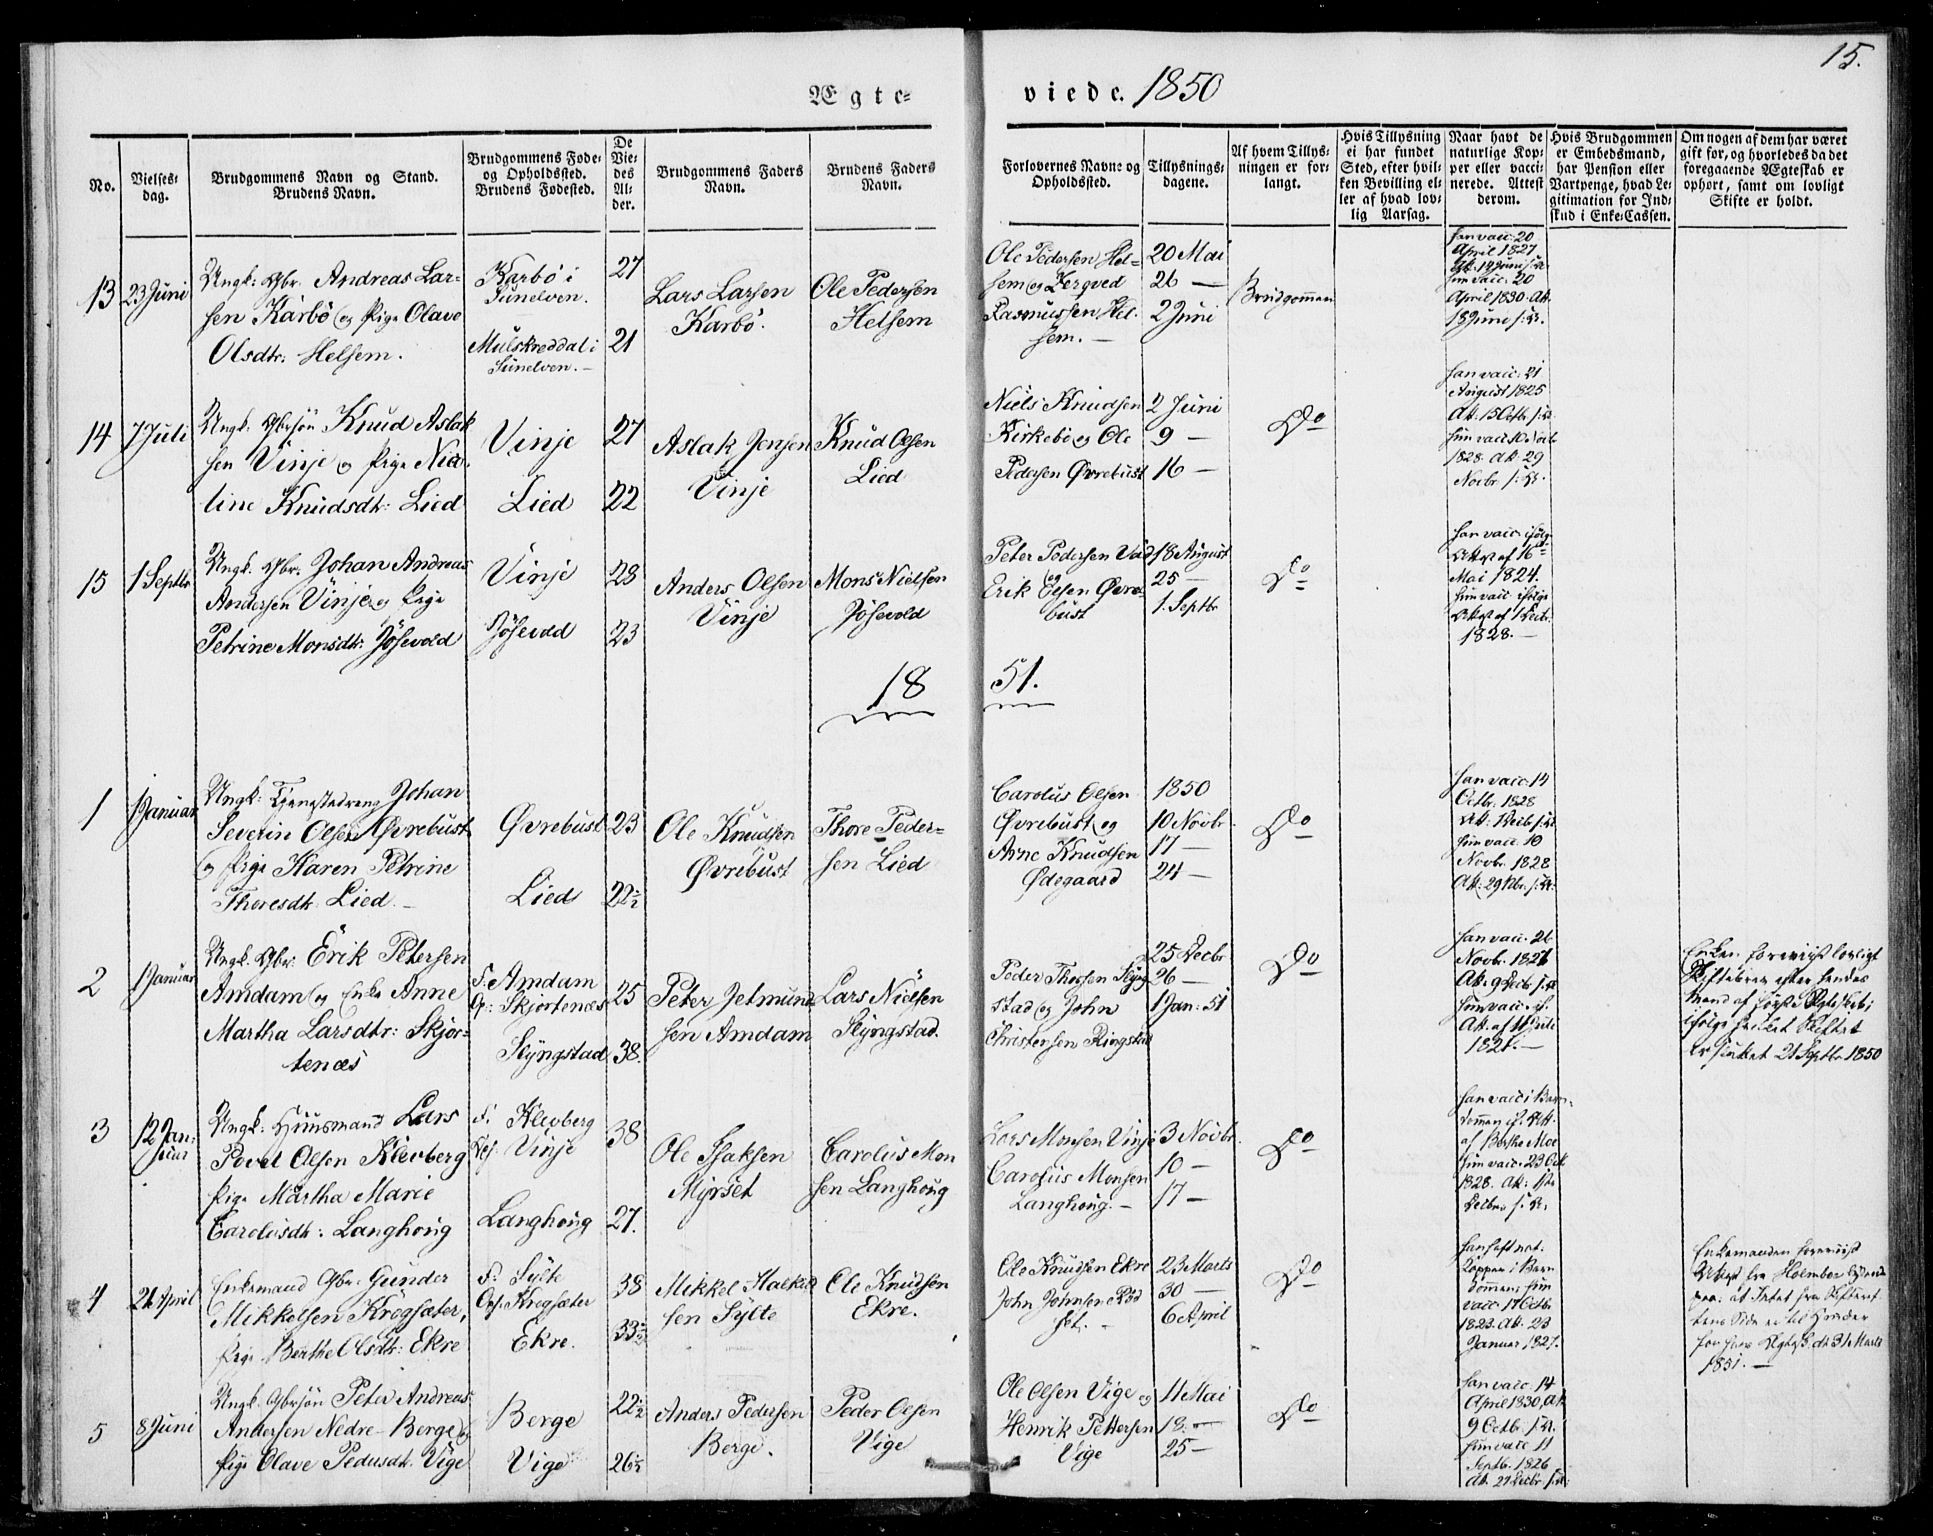 15.
Ægte-
viede. 1850
No.
Vielses-
dag.
Brudgommens Navn og Stand.
Brudens Navn.
Brudgommens Føde-
og Opholdssted.
Brudens Fødested.
De
Vie-
des
Al-
der.
Brudgommens Faders
Navn.
Brudens Faders
Navn.
Forlovernes Navne og
Opholdssted.
Tillysnings-
dagene.
Af hvem Tillys-
ningen er for-
langt.
Hvis Tillysning
ei har fundet
Sted, efter hvil-
ken Bevilling el-
ler af hvad lov-
lig Aarsag.
Naar havt de
naturlige Kop-
per eller vacci-
nerede. Attest
derom.
Hvis Brudgommen
er Embedsmand,
har Pension eller
Vartpenge, hvad Le-
gitimation for Ind-
skud i Enke-Cassen.
Om nogen af dem har været
gift før, og hvorledes da det
foregaaende Ægteskab er
ophørt, samt om lovligt
Skifte er holdt.
13
23 Juni
Ungk: Gbr. Andreas Lar-
sen Karbö og Pige Olave
Olsdtr: Helsem.
Karbö i
Sunelven.
Mulskreddal i
Sunelven.
27
21
Lars Larsen
Karbö.
Ole Pedersen
Helsem
Ole Pedersen Hel-
sem og
Rasmussen Hel-
sem.
20 Mai
26 —
2 Juni
Brudgommen
han vacc: 20
April 1827.
hun vacc: 20
April 1830. Att.
18 Juni s: A.
14
7 Juli
Ungk: Gbrsön Knud Aslak
sen Vinje og Pige Nico-
line Knudsdtr: Lied
Vinje
Lied
27
22
Aslak Jensen
Vinje
Knud Olsen
Lied
Niels Knudsen
Kirkebö og Ole
Pedersen Øvrebust
2 Juni
9 —
16 —
Do
han vacc: 21
August 1825
Att. 15 Octb. s: A.
1828. Att. 29
Novbr. s: A.
15
1 Septbr
Ungk. Gbr: Johan Andreas
Andersen Vinje og Pige
Petrine Monsdtr: Jösevold
Vinje
Jösevold
28
23
Anders Olsen
Vinje
Mons Nielsen
Jösevold
Peter Pedersen
og
Erik Olsen Øvre-
bust
18 August
25 —
1. Septbr
Do
han vacc. ifölge
Attest af 16de
Mai 1824.
hun vacc ifölge
Attest af 1 Decbr.
1828. —
18
51.
1
1 Januar
Ungk: Tjenestedreng Johan
Severin Olsen Øvrebust
og Pige Karen Petrine
Thoresdtr. Lied. —
Øvrebust
Lied
23
22½
Ole Knudsen
Øvrebust
Thore Peder-
sen Lied
Carolus Olsen
Øvrebust og
Arne Knudsen
Ødegaard
1850
10 Novbr
17 —
24 —
Do
han vacc: 14
Octbr. 1828
Att: 1 Decb s: A
hun vacc. 10
Novbr. 1828
2
1 Januar
Ungk. Gbr. Erik Petersen
Amdam og Enke Anne
Martha Larsdtr: Skjor-
tenæs
F. Amdam
O: Skjortenæs
Slyngstad
25
38.
Peter Jetmund
sen Amdam
Lars Nielsen
Slyngstad
Peder Thorsen Slyng
stad og John
Christensen Ringstad
25 Decbr
26 —
1 Jan: 51
Do
han vacc. 26
Enken foreviist lovligt
Skiftebrev efter hendes
Mand af förste Ægteskab;
ifölge hvilket Skiftet
er sluttet 21 Septbr 1850
3
12 Jan-
uar
Ungk: Huusmand Lars
Povel Olsen Klevberg
Pige Martha Marie
Carolusdtr: Langhoug
F. Klevberg
Vinje
Langhoug
38
27.
Ole Isaksen
Myrset
Carolus Mon
sen Langhoug
Lars Monsen Vinje
Carolus Monsen
Langhoug. —
3 Novbr
10 —
17 —
Do
han vacc i Barn-
dommen if. Att.
hun vacc. 23 Oct.
1828. Att: 1ste
Decbr s. A.
4
21 April
Enkemand Gbr. Gunder
Mikkelsen Krogsæter,
Pige Berthe Olsdtr: Ekre
F: Sylte
Krogsæter
Ekre.
38
33½
Mikkel
sen Sylte
Ole Knudsen
Ekre.
Ole Knudsen Ekre
John Johnsen Röd
set. —
23 Marts
30 —
6 April
Do
han haft nat.
Kopper i Barn
dommen; hun
vacc. 17 Octbr
1823. Att. 23
Januar 1827.
Enkemanden foreviist
Attest fra
31 Marts
1851. —
5
8 Juni
Ungk. Gbrsön Peter Andreas
Andersen Nedre-Berge og
Pige Olave Pedersdtr. Vige
Berge
Vige
22½
26½
Anders Pedersen
Berge.
Peder Olsen
Vige
Ole Olsen Vige og
Henrik Pettersen
Vige
11 Mai
18 —
25 —
Do
han vacc. 14
April 1830, Att.
9 Octb. s: A.
hun vacc 11
Septb. 1826
Att. 27 Decbr. s: A.